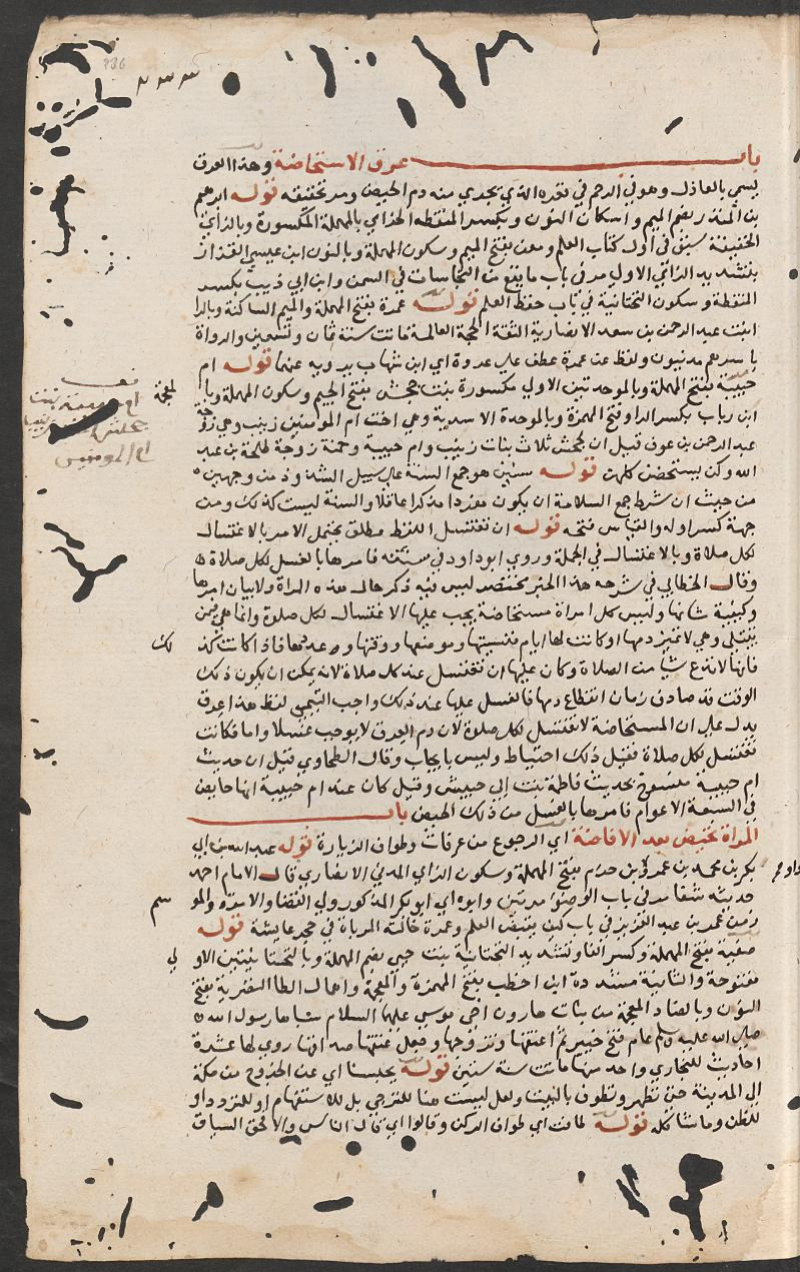 ٢٣٣
236
باب عرق الاستحاضة وهذا العرق
يسمى بالعاذل وهو في الرحم في قعره الذي يجري منه دم الحيض ومر تحقيقه قوله ابرهيم
بن المنذر بضم الميم واسكان النون وبكسر المنقطة الحزامي بالمهملة المكسورة وبالزاي
الخفيفة سبق في اول كتاب العلم ومعن بفتح الميم وسكون المهملة وبالنون ابن عيسى القزاز
بتشديد الزاي الاولى مر في باب ما يقع من النجاسات في السمن وابن ابي ذيب بكسر
المنقطة وسكون التحتانية في باب حفظ العلم قوله عمرة بفتح المهملة والميم الساكنة وبالرا
ابنت عبد الرحمن بن سعد الانصارية الثقة الحجة العالمة ماتت سنة ثمان وتسعين والرواة
باسرهم مدنيون ولفظ عن عمرة عطف على عروة اي ابن شهاب يرويه عنهما قوله ام
حبيبة بفتح المهملة وبالموحدتين الاولى مكسورة بنت جحش بفتح الجيم وسكون المهملة وبا لمعجمة
ابن رباب بكسر الرا وفتح الهمزة وبالموحدة الاسدية وهي اخت ام المومنين زينب وهي زوجة
عبد الرحمن بن عوف قيل ان لجحش ثلاث بنات زينب وام حبيبة وحمنة زوجة طلحة بن عبيد
الله وكن يستحضن كلهن قوله سنين هو جمع السنة على سبيل الشذوذ من وجهين
من حيث ان شرط جمع السلامة ان يكون مفردا مذكرا عاقلا والسنة ليست كذلك ومن
جهة كسر اوله والقياس فتحه قوله ان تغتسل اللفظ مطلق يحتمل الامر بالاغتسال
لكل صلاة وبالاغتسال في الجملة وروى ابو داود في سننه فامرها بالغسل لكل صلاة
وقال الخطابي في شرحه هذا الخبر مختصر ليس فيه ذكر حال هذه المراة ولا بيان امرها
وكيفية شانها وليس كل امراة مستحاضة يجب عليها الاغتسال لكل صلوة وانما هي فيمن
تبتلى وهي لا تميز دمها او كانت لها ايام فنسيتها وموضعها ووقتها وعددها فاذا كانت كذ لك
فانها لا تدع شيا من الصلاة وكان عليها ان تغتسل عند كل صلاة لانه يمكن ان يكون ذلك
الوقت قد صادف زمان انقطاع دمها فالغسل عليها عند ذلك واجب التيمي لفظ هذا عرق
يدل على ان المستحاضة لا تغتسل لكل صلوة لان دم العرق لا يوجب غسلا واما فكانت
تغتسل لكل صلاة فقيل ذلك احتياط وليس بايجاب وقال الطحاوي قيل ان حديث
ام حبيبة منسوخ بحديث فاطمة بنت ابي حبيش وقيل كان عند ام حبيبة انها حايض
في السبعة الاعوام فامرها بالغسل من ذلك الحيض باب
المراة تحيض بعد الافاضة اي الرجوع من عرفات وطواف الزيارة قوله عبد الله بن ابي
بكر بن محمد بن عمرو بن حزم بفتح المهملة وسكون الزاي المدني الانصاري قال الامام احمد
حديثه شفا مر في باب الوضوء مرتين وابوه اي ابو بكر المذكور ولي القضا والامرة والموسم
زمن عمر بن عبد العزيز في باب كيف يقبض العلم وعمرة خالته المرباة في حجر عايشة قوله
صفية بفتح المهملة وكسر الفا وتشديد التحتانية بنت حيي بضم المهملة وبالتحتانيتين الاولى
مفتوحة والثانية مشددة ابن اخطب بفتح الهمزة والمعجمة واهمال الطا النضرية بفتح
النون وبالضاد المعجمة من بنات هارون اخي موسى عليهما السلام سباها رسول الله
صلى الله عليه وسلم عام فتح خيبر ثم اعتقها وتزوجها وجعل عتقها صداقها روي لها عشرة
احاديث للبخاري واحد منها ماتت سنة ستين قوله يحبسنا اي عن الخروج من مكة
الى المدينة حتى تطهر وتطوف بالبيت ولعل ليست هنا للترجي بل للاستفهام او للتردد او
للظن وما شاكله قوله طافت اي طواف الركن وقالوا اي قال الناس والا فحق السياق
ام حبيبة بنت
ام المومنين